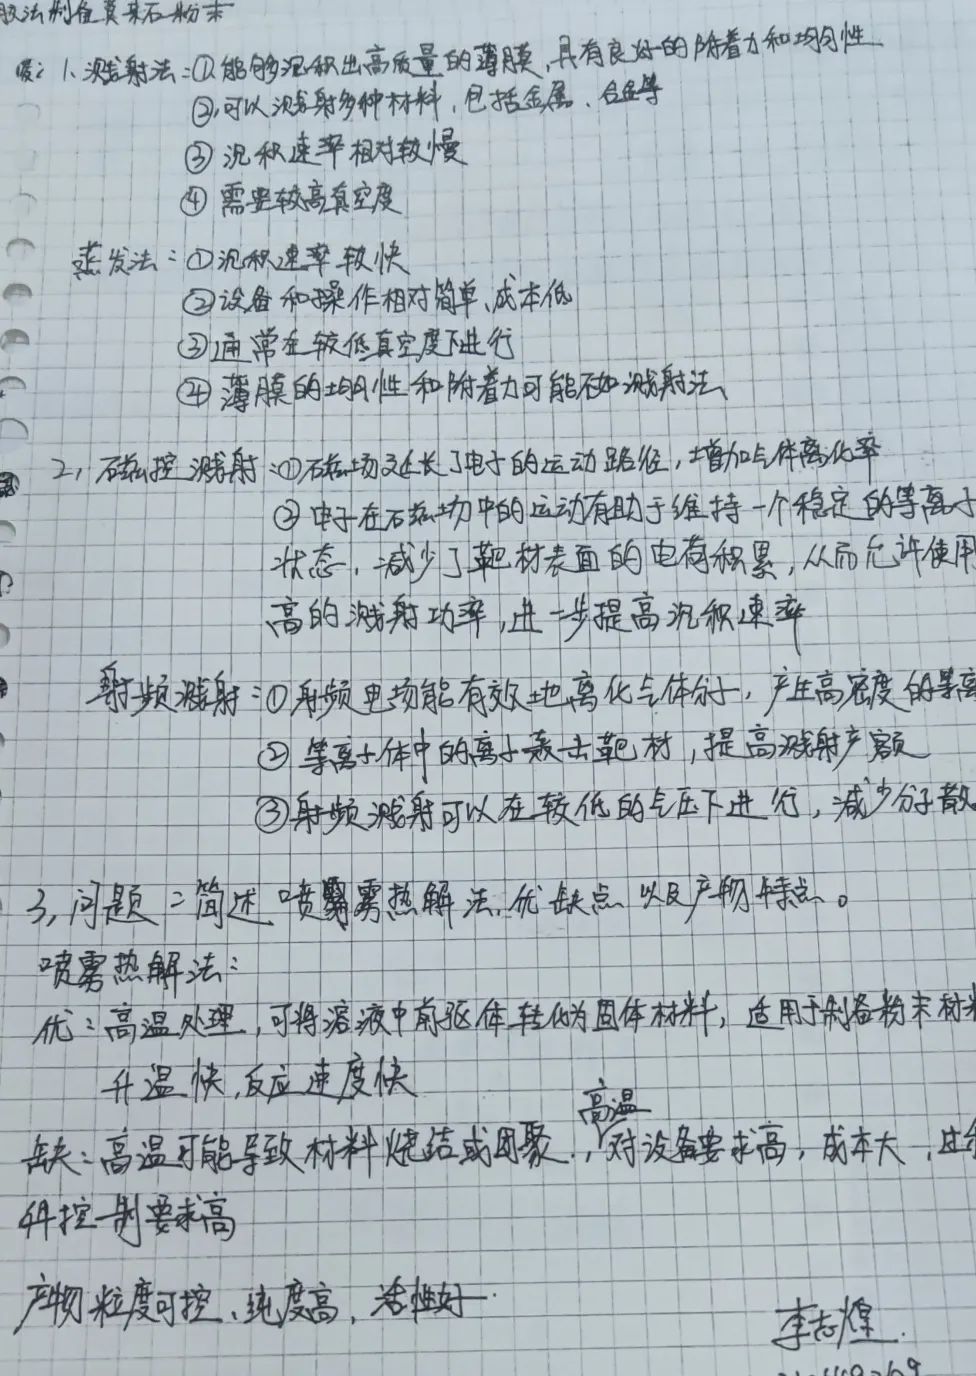 胶法制备莫来石粉末
1、溅射法:①能够沉积出高质量的薄膜,具有良好的附着力和均匀性
②可以溅射多种材料,包括金属、合金等
③ 沉积速率相对较慢
④ 需要较高真空度
蒸发法:①沉积速率较快
②设备和操作相对简单、成本低
③通常在较低真空度下进行
④ 薄膜的均匀性和附着力可能不如溅射法
2、磁控溅射:①磁场延长了电子的运动路径,增加气体离化率
②电子在磁场中的运动有助于维持一个稳定的等离子
状态,减少了靶材表面的电荷积累,从而允许使用
高的溅射功率,进一步提高沉积速率
射频溅射:①射频电场能有效地离化气体分子,产生高密度的等离
② 等离子体中的离子轰击靶材,提高溅射产额
③射频溅射可以在较低的气压下进行,减少分子散
3、问题:简述喷雾热解法优缺点以及产物特点。
喷雾热解法:
优:高温处理,可将溶液中前驱体转化为固体材料,适用于制备粉末材料
升温快,反应速度快
高温
缺:高温可能导致材料烧结或团聚,对设备要求高,成本大,
件控制要求高
产物粒度可控、纯度高,活性好
李志煌